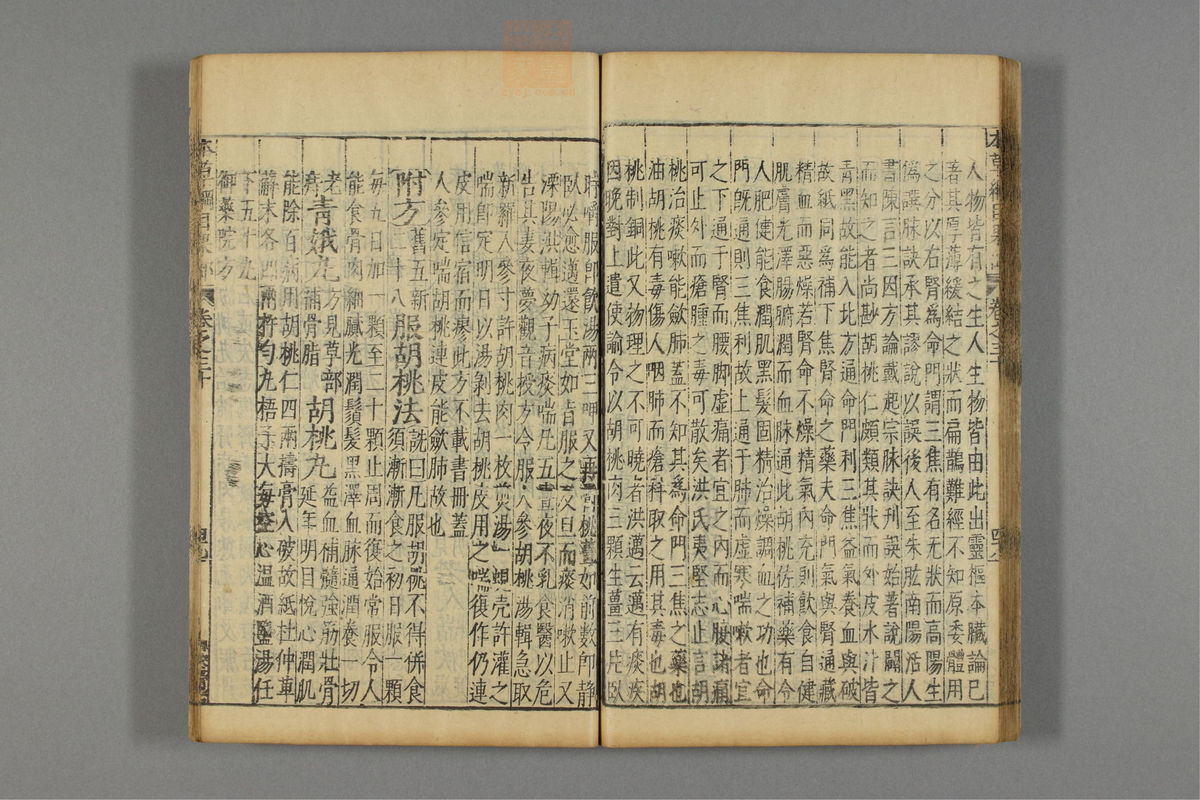 人物皆有之生人生物皆由此出靈樞本臟論已
著其厚薄緩結之狀而扁鵲難經不知原委體用
之分以右腎為命門謂三焦有名无狀而高陽生
偽譔脉訣承其謬說以誤後人至朱肱南陽活人
書陳言三因方論戴起宗脉訣刋誤始著說闢之
而知之者尚尠胡桃仁頗類其狀而外皮水汁皆
青黑故能入此方通命門利三焦益氣養血與破
故紙同為補下焦腎命之藥夫命門氣與腎通藏
精血而惡燥若腎命不燥精氣內充則飲食自健
肌膚光澤腸腑潤而血脉通此胡桃佐補藥有令
人肥健能食潤肌黑髮固精治燥調血之功也命
門旣通則三焦利故上通于肺而虛寒喘嗽者宜
之下通于腎而腰脚虛痛者宜之內而心腹諸痛
可止外而瘡腫之毒可散矣洪氏夷堅志止言胡
桃治痰嗽能歛肺蓋不知其為命門三焦之藥也
油胡桃有毒傷人咽肺而瘡科取之用其毒也胡
桃制銅此又物理之不可曉者洪邁云邁有痰疾
因晚對上遣使諭令以胡桃肉三顆生薑三片臥
時嚼服即飲湯兩三呷又再嚼桃薑如前數即静
臥必愈邁還玉堂如旨服之及旦而痰消嗽止又
溧陽洪輯幼子病痰喘凡五晝夜不乳食醫以危
告其妻夜夢觀音授方令服人參胡桃湯輯急取
新羅人參寸許胡桃肉一枚煎湯一蜆壳許灌之
喘即定明日以湯剝去胡桃皮用之喘復作仍連
皮用信宿而瘳此方不載書冊蓋
人參定喘胡桃連皮能歛肺故也
附方舊五新二十八服胡桃法詵曰凡服胡桃不得併食須漸漸食之初日服一顆
每五日加一顆至二十顆止周而復始常服令人
能食骨肉細膩光潤鬚髮黑澤血脉通潤養一切
老青娥丸方見草部補骨脂胡桃丸益血補髓強筋壯骨延年明目悅心潤肌
能除百病用胡桃仁四兩擣膏入破故紙杜仲萆
薢末各四兩杵勻丸梧子大每空心溫酒鹽湯任
下五十丸
御藥院方
卷之三十